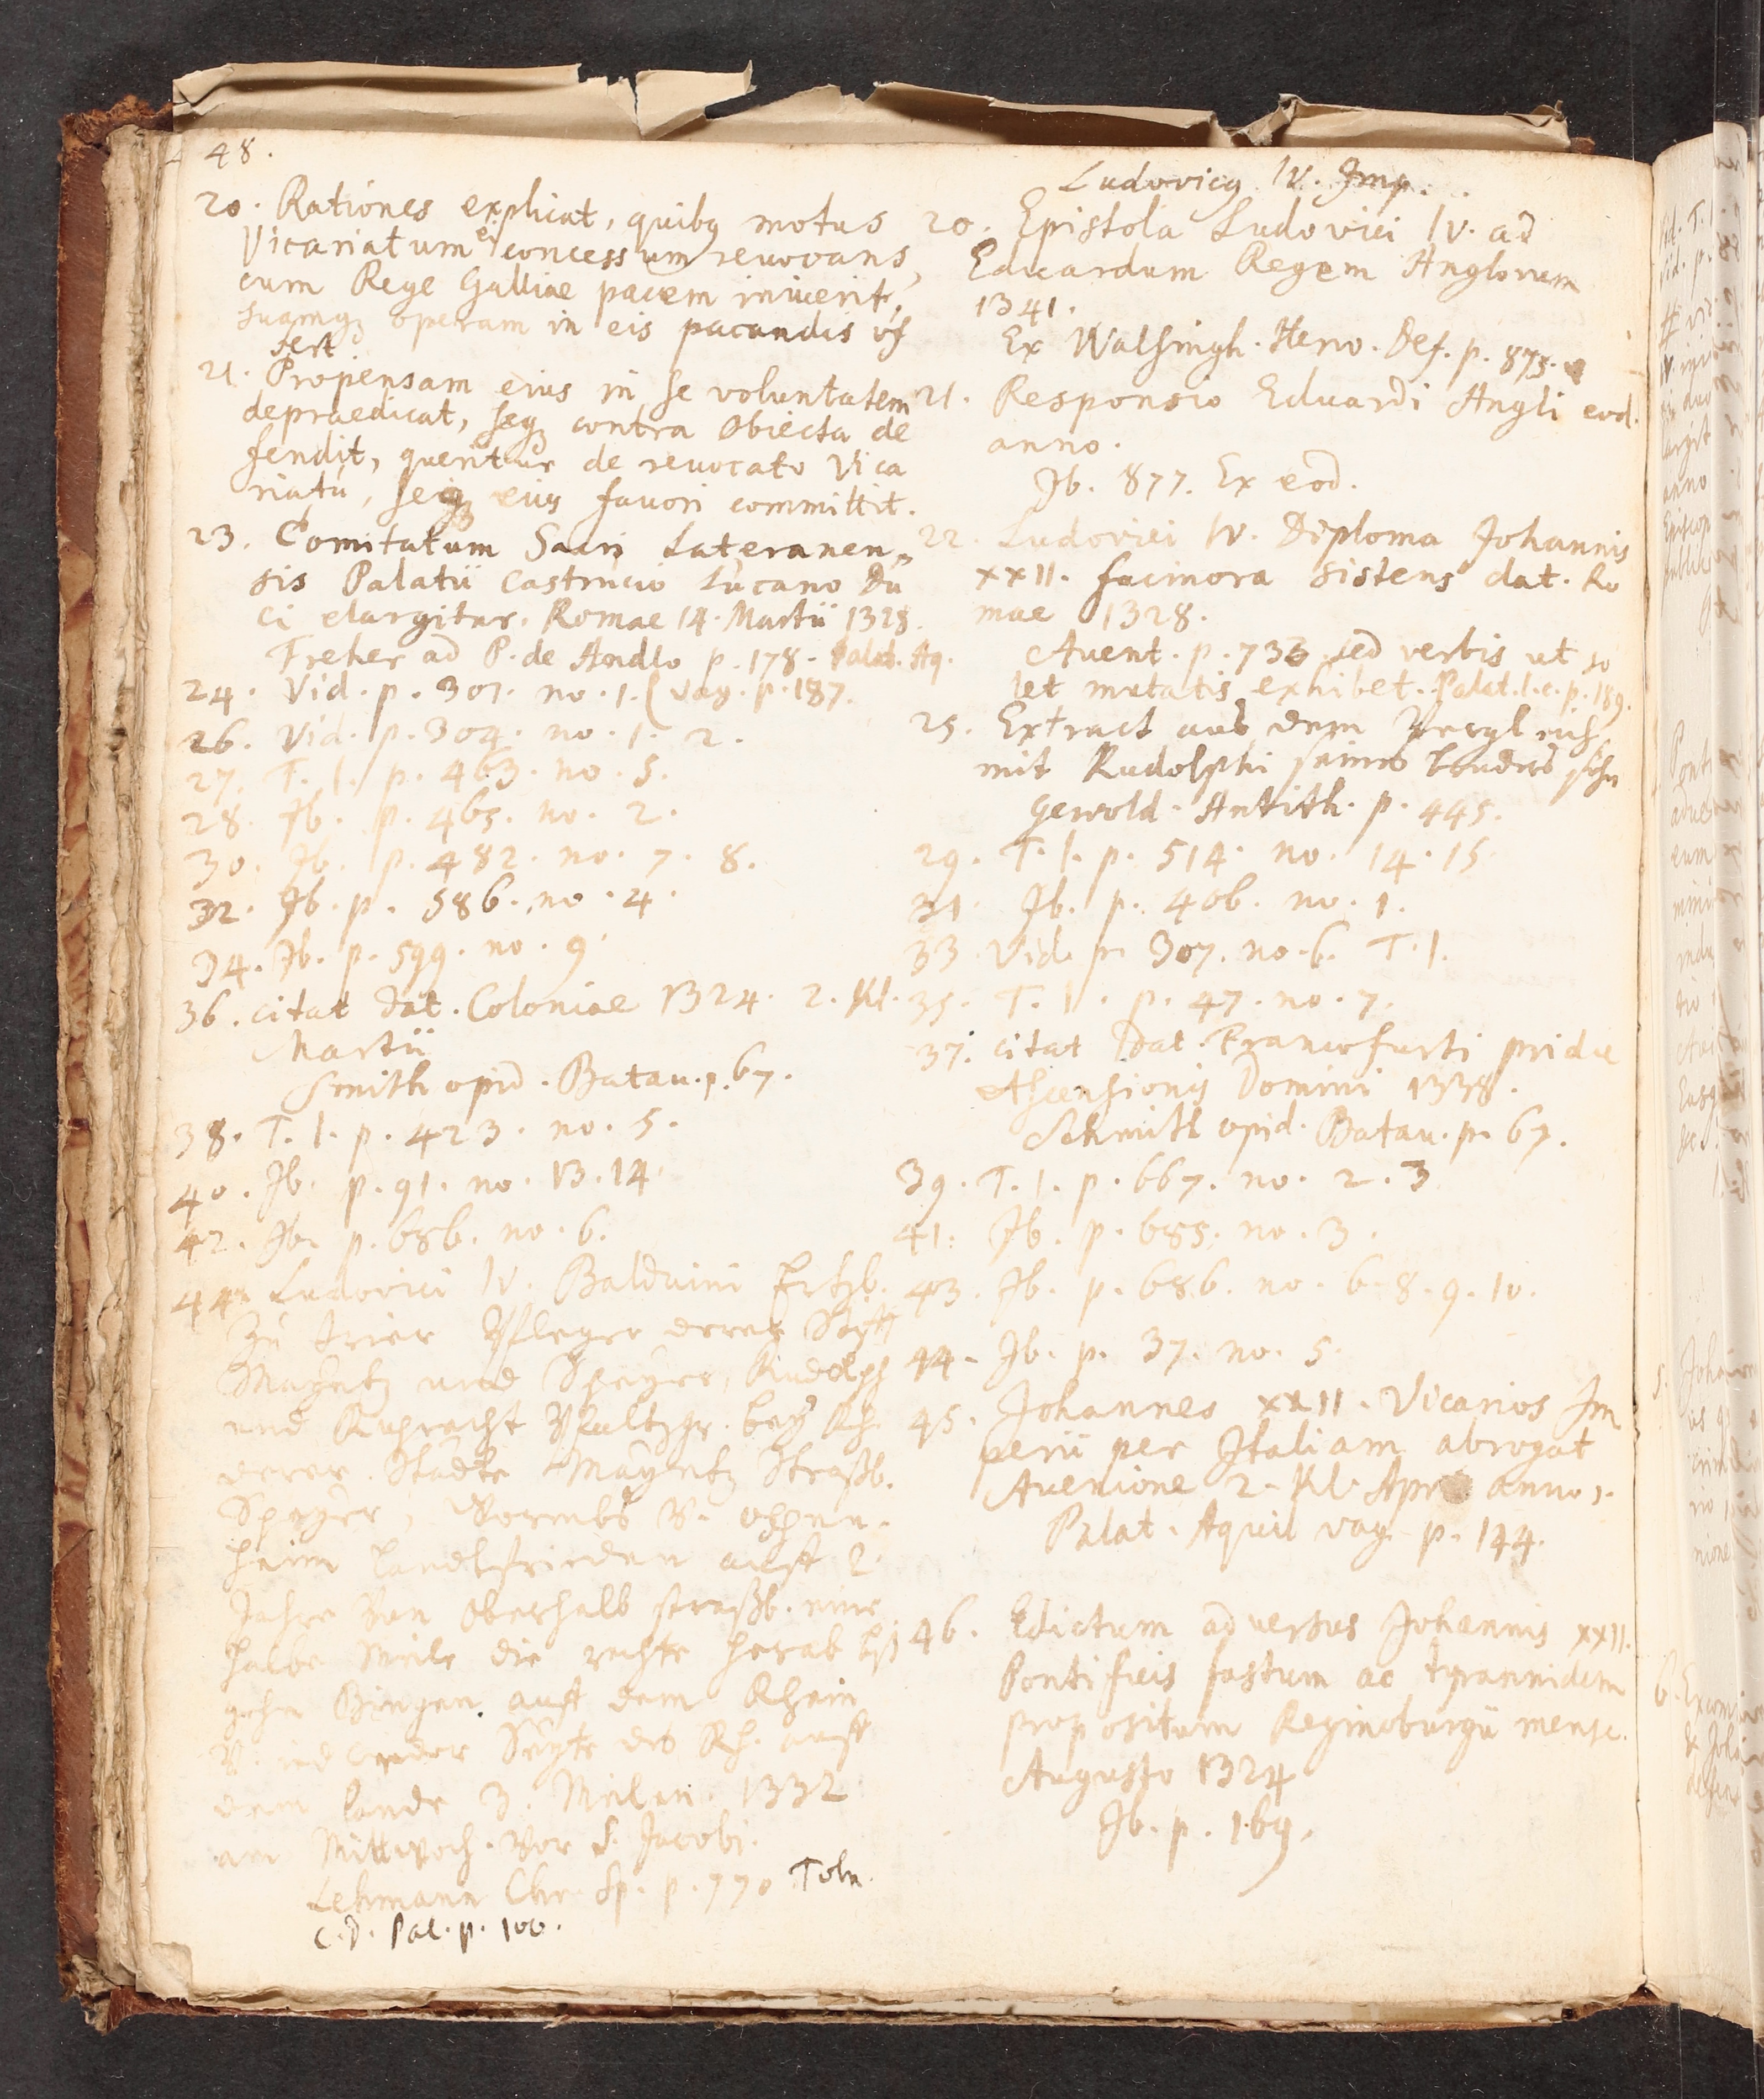 48.
20. Rationes explicat, quibq motus
Vicariatum ei concessum reuocans,
cum Rege Galliae pacem inierit,
suamq operam in eis pacandis of
fert
21. Propensam eius in se voluntatem
depraedicat, seq contra Obiecta de
fendit, queritur de reuocato Vica
riatu, seq eius favori committit.
23. Comitatum Sacri Lateranen„
sis Palatii Castrucio Lucano Du
ci elargitur. Romae 14. Martii 1328.
Freher ad P. de Andlo p. 178. Palat. Aq.
24. Vid. p. 301. no. 1. (vag. p. 187.
26. Vid. p. 304. no. 1. 2.
27. T. 1. p. 463. no. 5.
28. Jb. p. 465. no. 2.
30. Jb. p. 482. no. 7. 8.
32. Jb. p. 586. no. 4.
34. Jb. p. 599. no. 9.
36. citat dat. Coloniae 1324. 2. Kl.
Martii
Smith opid. Batau. p. 67.
38. T. 1. p. 423. no. 5.
40. Jb. p. 91. no. 13. 14.
42. Jb. p. 686. no. 6.
44. Ludovici IV. Balduini Ertzb.
zu Trier Pfleger derer Stifft
Mayntz und Speyer, Rudolph
und Ruprecht Pfaltzgr. bey Rh.
derer Städte Mayntz Straßb.
Speyer, Wormbs V. Oppen-
heim Landtfrieden auff 2
Jahre Von Oberhalb Straßb. eine
halbe Meile die rechte herab biß
gehn Bingen auff dem Rhein
V. ied Seyte des Rh. auff
dem Lande 3. Meilen. 1332
am Mittwoch. Vor S. Jacobi.
Lehmann Chr. Sp. p. 770 Toln.
C. D. Pal. p. 100.
Ludovicq IV. Jmp.
20. Epistola Ludovici IV. ad
Eduardum Regem Anglorum
1341.
Ex Walsingh. Herw. Def. p. 875.
21. Responsio Eduardi Angli eod.
anno.
Jb. 877. Ex eod.
22. Ludovici IV. Diploma Johannis
XXII. facinora sistens dat. Ro
mae 1328.
Auent. p. 733. sed verbis ut so
let mutatis exhibet. Palat. l. c. p. 189.
25. Extract aus dem Vergleich
mit Rudolphi seines bruders sohn
Gewold. Antith. p. 445.
29. T. 1. p. 514. no. 14. 15
31. Jb. p. 406. no. 1.
33. Vid. p. 307. no. 6. T. 1.
35. T. 1. p. 47. no. 7.
37. citat Dat. Francofurti pridie
Ascensionis Domini 1338.
Schmith opid. Batau. p. 67.
39. T. 1. p. 667. no. 2. 3
41. Jb. p. 685. no. 3.
43. Jb. p. 686. no. 6. 8. 9. 10.
44. Jb. p. 37. no. 5.
45. Johannes XXII. Vicarios Jm
perii per Jtaliam abrogat
Auenione 2. Kl. Apr anno 1.
Palat. Aquil vag. p. 144.
46. Edictum adversus Johannis XXII.
Pontificis fastum ac tyrannidem
propositum Reginoburgii mense
Augusto 1324
Jb. p. 169.